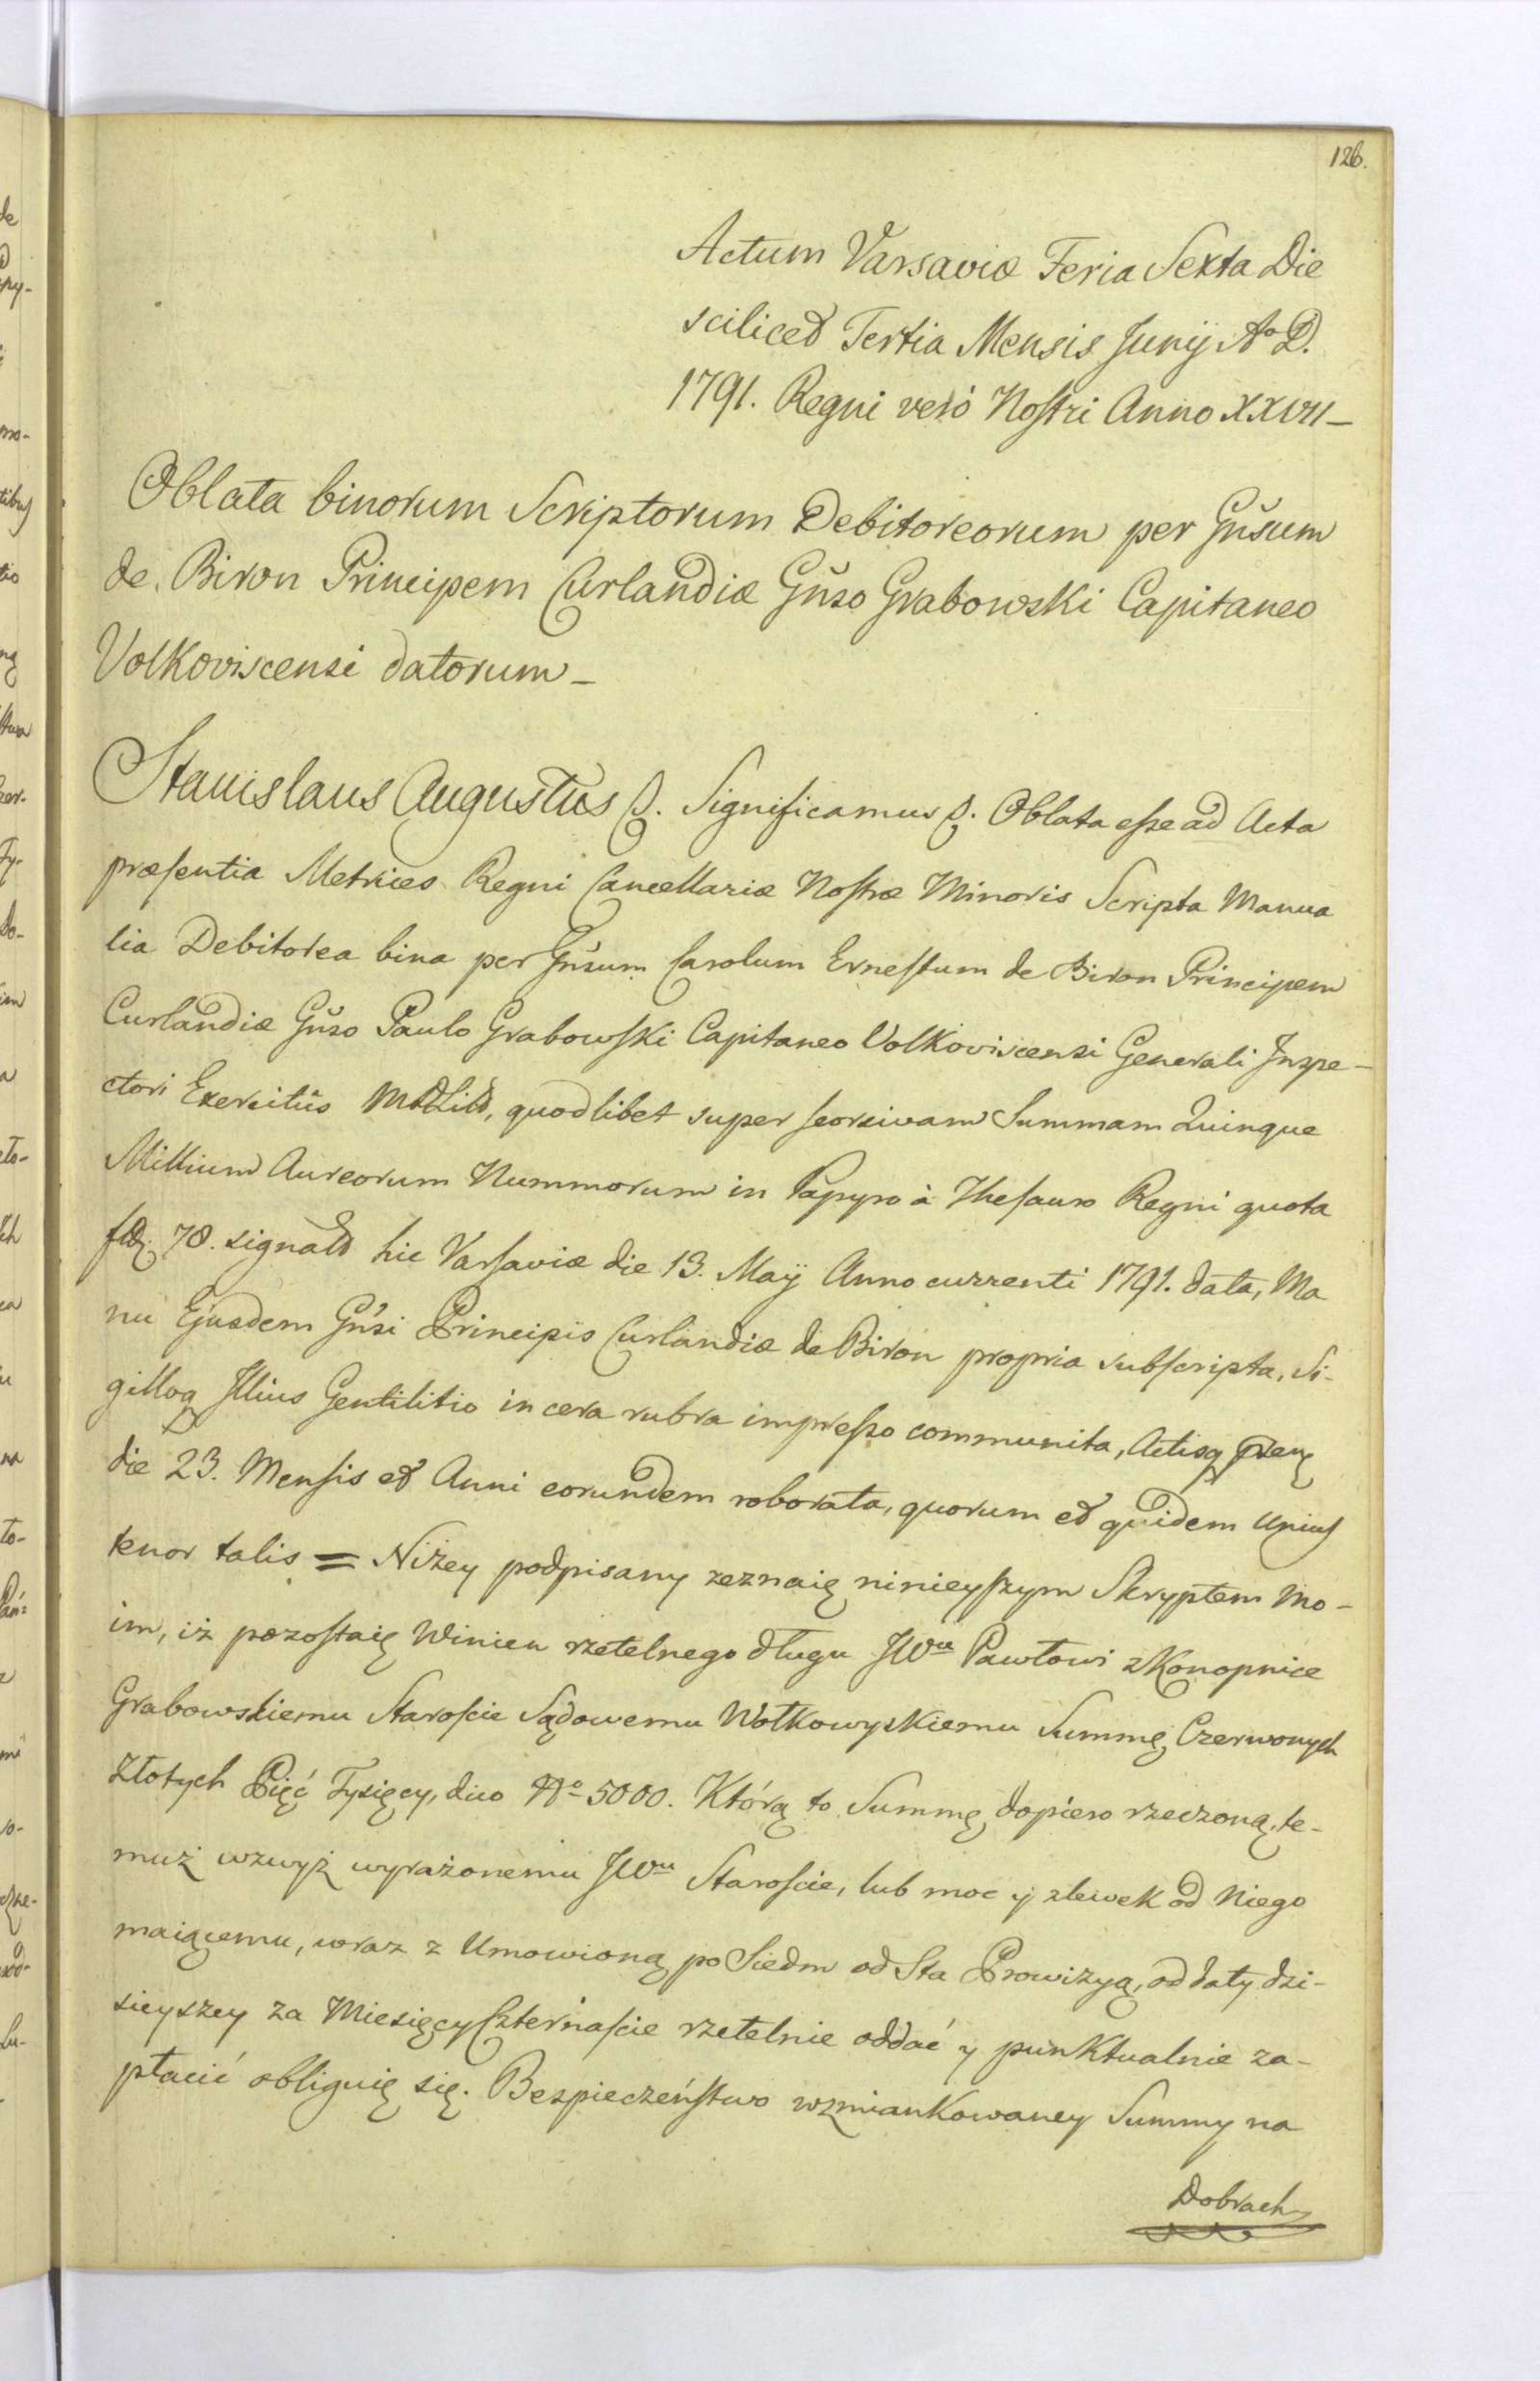 126.
Actum Varsaviæ Feria Sexta Die
scilicet Tertia Mensis Junij Aº D.
1791. Regni verò Nostri Anno XXVII_
Oblata binorum Scriptorum Debitoreorum per Gñsum
de Biron Principem Curlandiæ Gñso Grabowski Capitaneo
Volkoviscensi datorum_
Stanislaus Augustus &. Significamus &. Oblata esse ad Acta
præsentia Metrices Regni Cancellariæ Nostræ Minoris Scripta Manua
lia Debitorea bina per Gñsum Carolum Ernestum de Biron Principem
Curlandiæ Gñso Paulo Grabowski Capitaneo Volkoviscensi Generali Inspe-
ctori Exercitûs quodlibet super seorsivam Summam Quinque
Millium Aureorum Nummorum in Papyro à Thesauro Regni quota
78. hic Varsaviæ die 13. Maÿ Anno currenti 1791. data, Ma
nu Ejusdem Gñsi Principis Curlandiæ de Biron propria subscripta, Si-
gilloq Illius Gentilitio in cera rubra impresso communita, Actisq
die 23. Mensis et Anni eorundem roborata, quorum et quidem Unius
tenor talis = Niżey podpisany zeznaię ninieyszym Skryptem Mo-
im, iż pozostaię Winien rzetelnego długu JWu Pawłowi z Konopnice
Grabowskiemu Staroscie Sądowemu Wołkowyskiemu Summę Czerwonych
Złotych Pięć Tysięcy, dico Nº 5000. Którą to Summę dopiero rzeczoną, te-
muż wzwyż wyrażonemu JWu Staroscie, lub moc y zlewek od Niego
maiącemu, wraz z Umowioną po Siedm od Sta Prowizyą, od daty dzi-
sieyszey za Miesięcy Czternascie rzetelnie oddać y punktualnie za-
płacić obliguię się. Bezpieczeństwo wzmiankowaney Summy na
Dobrach